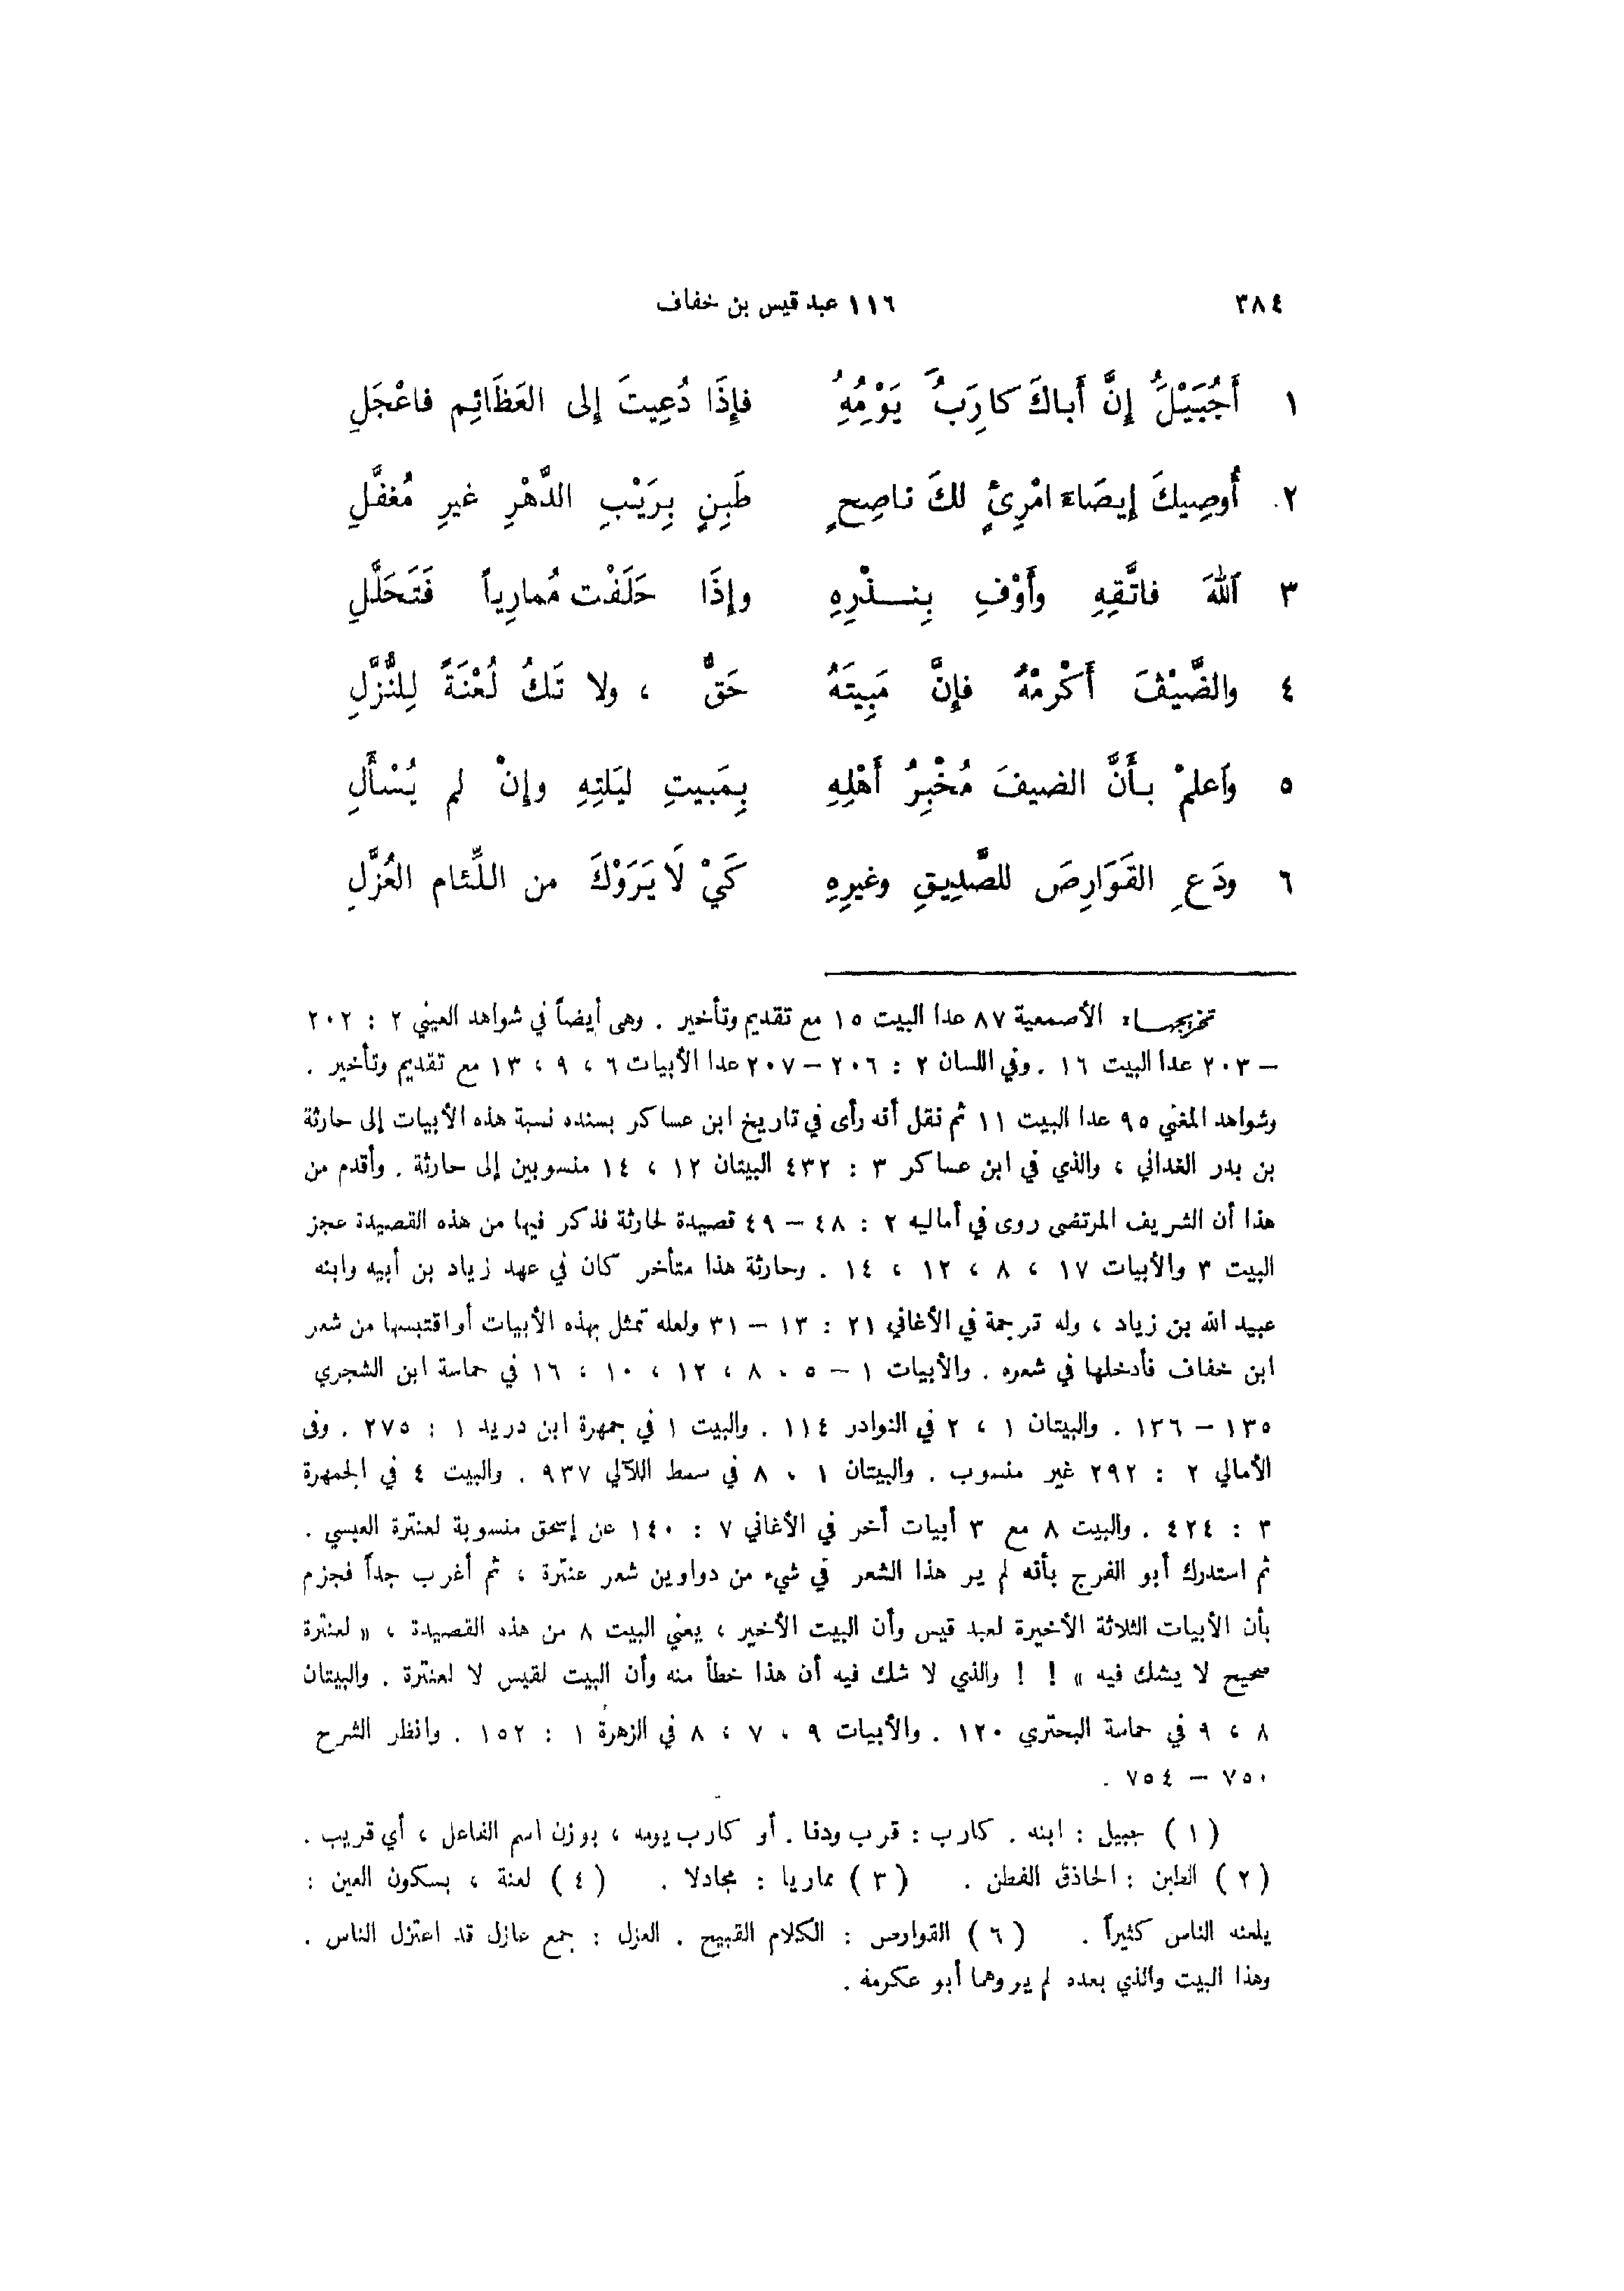 ٣٨٤ ١١٦ عبد قيس بن خفاف
١ أَجُبَيْلُ إِنَّ أَباكَ كارِبُ يَوْمِهِ فإِذَا دُعِيتَ إِلى العَظَائِمِ فاعْجَلِ
٢ أُوصِيكَ إِيصَاءَ امْرِئٍ لكَ ناصِحٍ طَبِنٍ بِرَيْبِ الدَّهْرِ غيرِ مُغفَّلِ
٣ اَللهَ فاتَّقِهِ وأَوْفِ بِنـذْرِهِ وإِذَا حَلَفْت مُمارِياً فَتَحَلَّلِ
٤ والضَّيْفَ أَكْرِمْهُ فإِنَّ مَبِيتَهُ حَقٌّ ، ولا تَكُ لُعْنَةً لِلنُّزَّلِ
٥ وَاَعلمْ بأَنَّ الضيفَ مُخْبِرُ أَهْلِهِ بِمَبيتِ ليَلتِهِ وإِنْ لم يُسْأَلِ
٦ ودَعِ القَوَارِصَ للصَّدِيقِ وغيرِهِ كَيْ لَا يَرَوْكَ من اللِّئام العُزَّلِ
تخريجها : الأصمعية ٨٧ عدا البيت ١٥ مع تقديم وتأخير . وهى أيضاً في شواهد العيني ٢ : ٢٠٢
– ٢٠٣ عدا البيت ١٦ . وفي اللسان ٢ : ٢٠٦ – ٢٠٧ عدا الأبيات ٦ ، ٩ ، ١٣ مع تقديم وتأخير .
وشواهد المغني ٩٥ عدا البيت ١١ ثم نقل أنه رأى في تاريخ ابن عساكر بسنده نسبة هذه الأبيات إلى حارثة
بن بدر الغداني ، والذي في ابن عساكر ٣ : ٤٣٢ البيتان ١٢ ، ١٤ منسوبين إلى حارثة . وأقدم من
هذا أن الشريف المرتضى روى في أماليه ٢ : ٤٨ – ٤٩ قصيدة لحارثة فذكر فيها من هذه القصيدة عجز
البيت ٣ والأبيات ١٧ ، ٨ ، ١٢ ، ١٤ . وحارثة هذا متأخر كان في عهد زياد بن أبيه وابنه
عبيد الله بن زياد ، وله ترجمة في الأغاني ٢١ : ١٣ – ٣١ ولعله تمثل بهذه الأبيات أو اقتبسها من شعر
ابن خفاف فأدخلها في شعره . والأبيات ١ – ٥ ، ٨ ، ١٢ ، ١٠ ، ١٦ في حماسة ابن الشجري
١٣٥ – ١٣٦ . والبيتان ١ ، ٢ في النوادر ١١٤ . والبيت ١ في جمهرة ابن دريد ١ : ٢٧٥ . وفى
الأمالي ٢ : ٢٩٢ غير منسوب . والبيتان ١ ، ٨ في سمط اللآلي ٩٣٧ . والبيت ٤ في الجمهرة
٣ : ٤٢٤ . والبيت ٨ مع ٣ أبيات أخر في الأغاني ٧ : ١٤٠ عن إسحق منسوبة لعنترة العبسي .
ثم استدرك أبو الفرج بأنه لم ير هذا الشعر في شيء من دواوين شعر عنترة ، ثم أغرب جداً فجزم
بأن الأبيات الثلاثة الأخيرة لعبد قيس وأن البيت الأخير ، يعني البيت ٨ من هذه القصيدة ، « لعنترة
صحيح لا يشك فيه » ! ! والذي لا شك فيه أن هذا خطأ منه وأن البيت لقيس لا لعنترة . والبيتان
٨ ، ٩ في حماسة البحتري ١٢٠ . والأبيات ٩ ، ٧ ، ٨ في الزهرة ١ : ١٥٢ . وانظر الشرح
٧٥٠ – ٧٥٤ .
( ١ ) جبيل : ابنه . كارب : قرب ودنا . أو كارب يومه ، بوزن اسم الفاعل ، أي قريب .
( ٢ ) الطبن : الحاذق الفطن . ( ٣ ) مماريا : مجادلا . ( ٤ ) لعنة ، بسكون العين :
يلعنه الناس كثيراً . ( ٦ ) القوارص : الكلام القبيح . العزل : جمع عازل قد اعتزل الناس .
وهذا البيت والذي بعده لم يروهما أبو عكرمة .